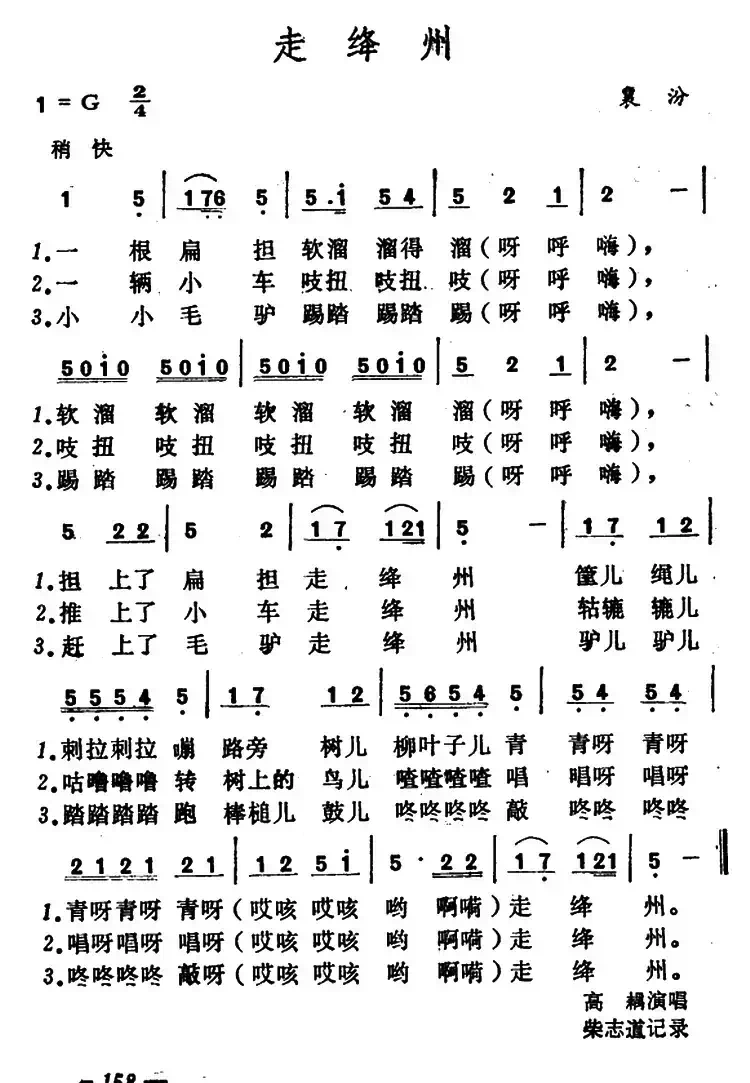 走绛州
1=G 2/4
襄汾
稍快
1 5 | 176 5 | 5.i 54 | 5 2 1 | 2 - |
1.一根扁担软溜溜得溜(呀呼嗨),
2.一辆小车吱扭吱扭吱(呀呼嗨),
3.小小毛驴踢踏踢踏踢(呀呼嗨),
50i0 50i0 | 50i0 50i0 | 5 2 1 | 2 - |
1.软溜软溜软溜软溜溜(呀呼嗨),
2.吱扭吱扭吱扭吱扭吱(呀呼嗨),
3.踢踏踢踏踢踏踢踏踢(呀呼嗨),
5 22 | 5 2 | 17 121 | 5 - | 17 12 |
1.担上了扁担走绛州筐儿绳儿
2.推上了小车走绛州轱辘辘儿
3.赶上了毛驴走绛州驴儿驴儿
5554 5 | 17 12 | 5654 5 | 54 54 |
1.刺拉刺拉嘣路旁树儿柳叶子儿青青呀青呀
2.咕噜噜噜转树上的鸟儿喳喳喳喳唱唱呀唱呀
3.踏踏踏踏跑棒槌儿鼓儿咚咚咚咚敲咚咚咚咚
2121 21 | 12 5i | 5 · 22 | 17 121 | 5 - ‖
1.青呀青呀青呀(哎咳哎咳哟啊嗬)走绛州。
2.唱呀唱呀唱呀(哎咳哎咳哟啊嗬)走绛州。
3.咚咚咚咚敲呀(哎咳哎咳哟啊嗬)走绛州。
高耦演唱
柴志道记录
— 158 —